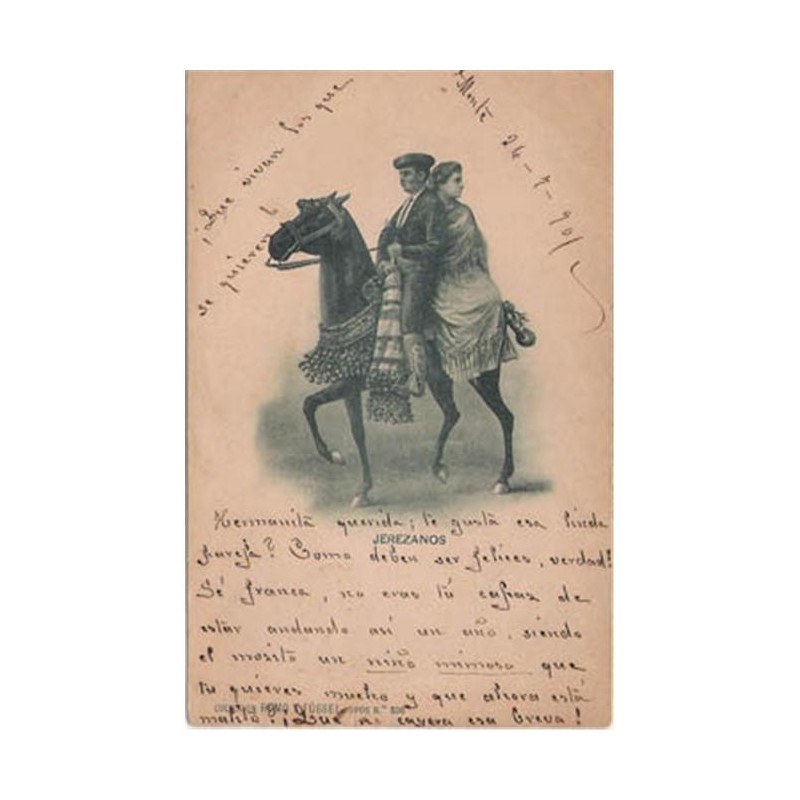 ¡Que vivan los que
se quieren!
Monte 26-7-901
Hermanita querida; te gusta esa linda
JEREZANOS
pareja? Como deben ser felices, verdad?
Sé franca, no eras tú capaz de
estar andando así un año, siendo
el mosito un niño mimoso que
tu quieres mucho y que ahora está
malito? ¡Que no cayera esa breva!
ROMO Y FÜSSEL